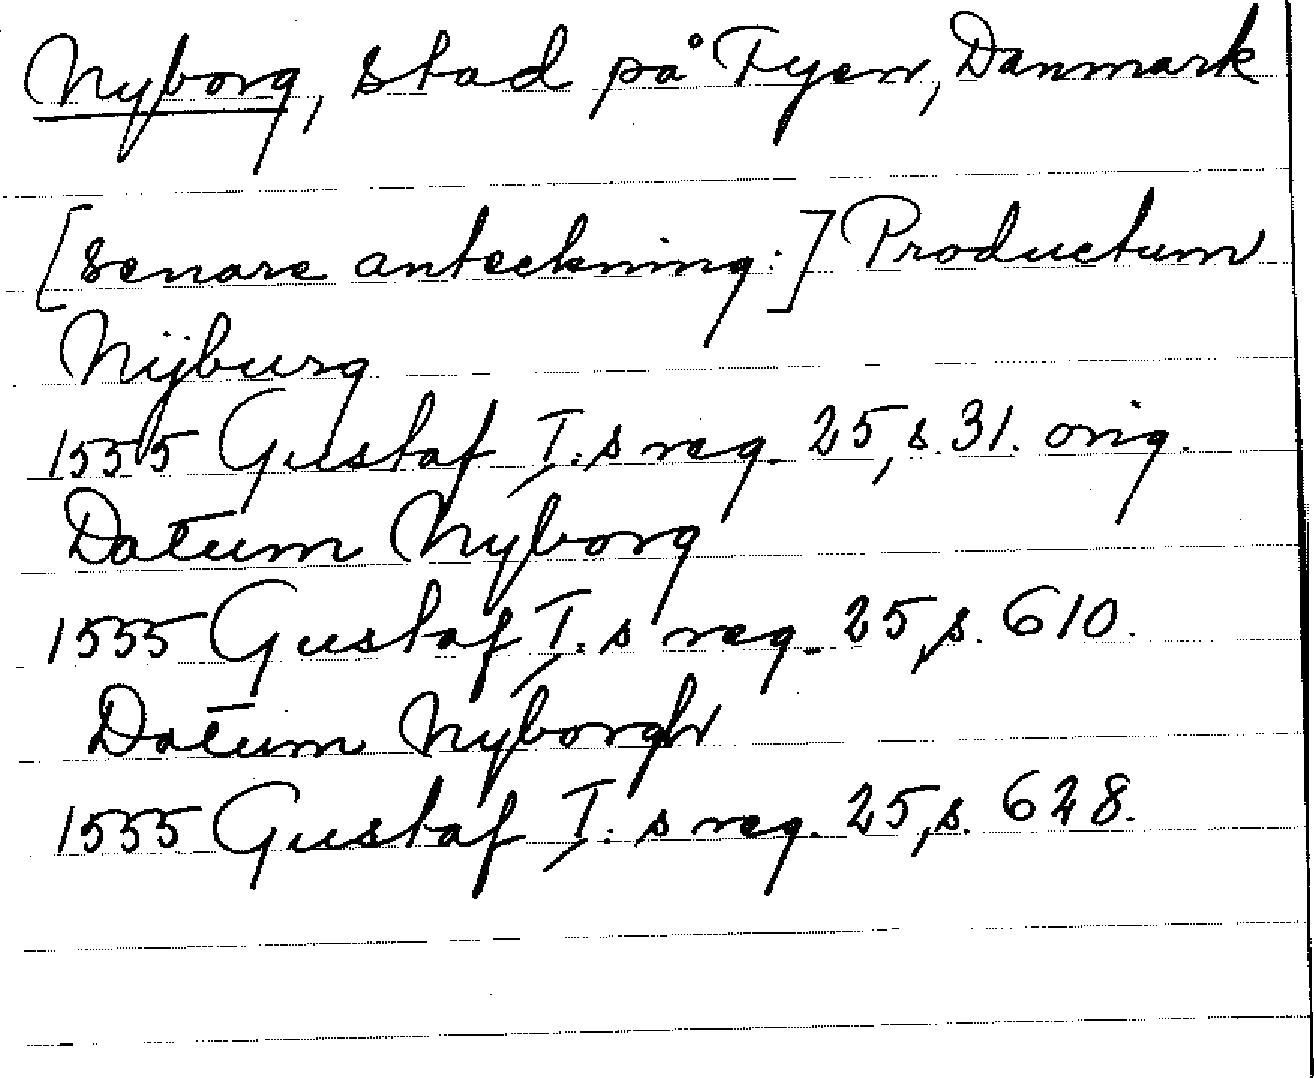 Nyborg, stad på Fyen, Danmark
[senare anteckning:] Productum
Nijburg
1555 Gustaf I:s reg. 25, s. 31. orig.
Datum Nyborg
1555 Gustaf I:s reg. 25, s. 610.
Datum Nyborgh
1555 Gustaf I:s reg. 25, s. 628.